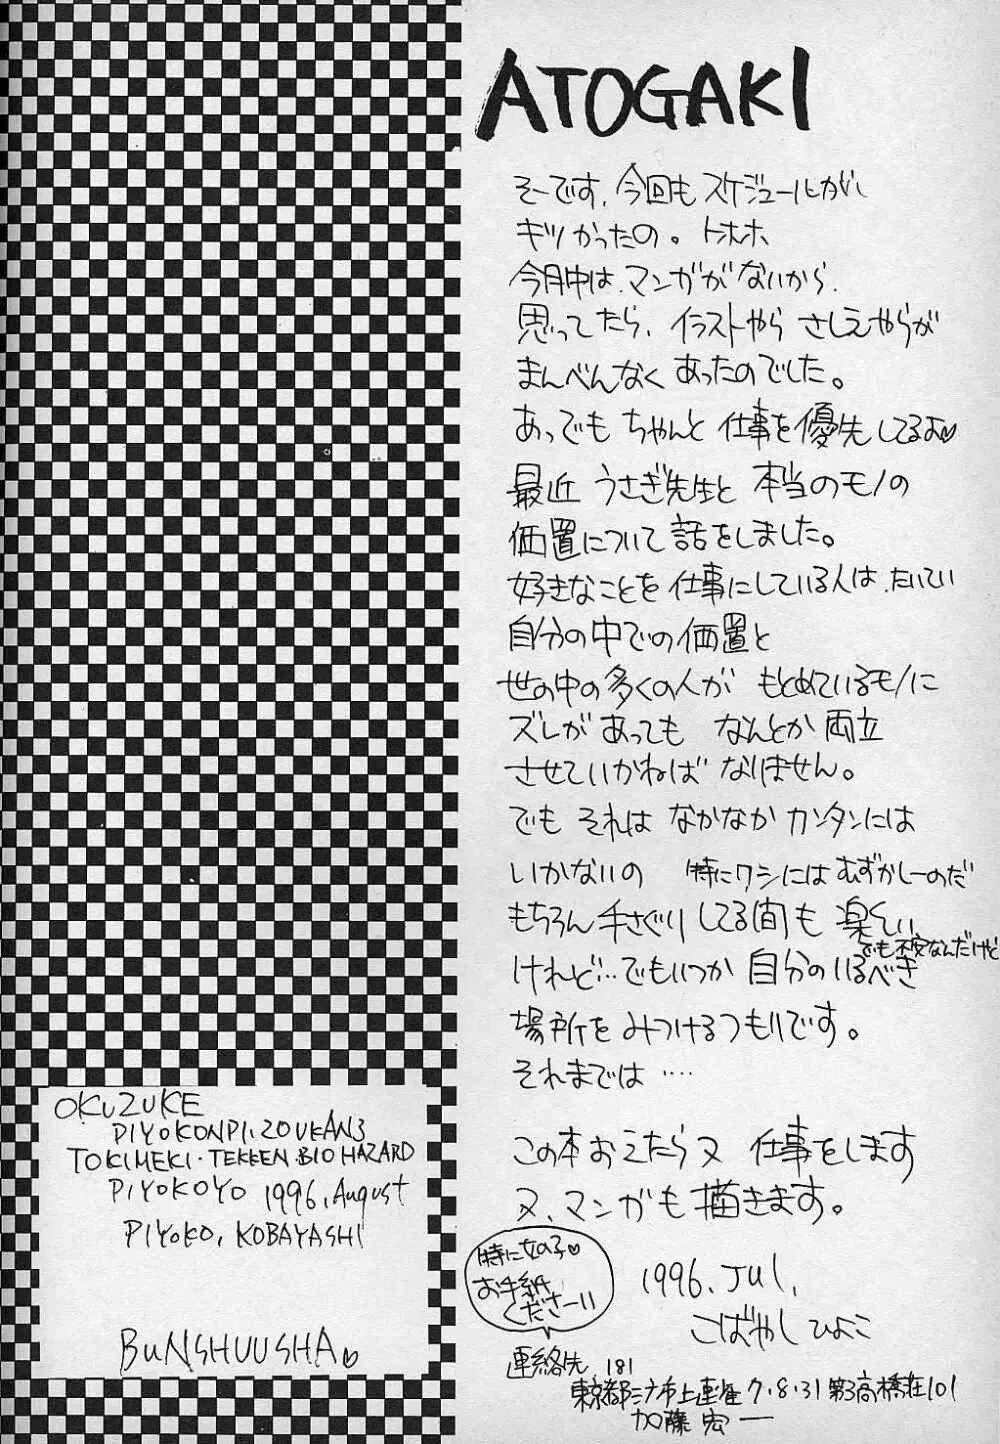 ATOGAKI
そーです、今回も スケジュールがね
キツかったの。トホホ
今月中は、マンガがないから、
思ってたら、イラストやら さしえやらが
まんべんなく あったのでした。
あっでも ちゃんと 仕事を優先してるよ♡
最近 うさぎ先生と 本当のモノの
価置について 話をしました。
好きなことを 仕事にしている人は、たいてい
自分の中での価置と
世の中の多くの人が もとめているモノに
ズレが あっても なんとか 両立
させていかねば なりません。
でも それは なかなか カンタンには
いかないの 特にワシには むずかしーのだ
もちろん 手さぐり してる間も 楽しい
でも不安なんだけど
けれど…でもいつか 自分のいるべき
場所を みつけるつもりです。
それまでは ……
この本おえたら 又 仕事をします
又、マンガも 描きます。
1996. Jul.
こばやし ひよこ
特に女の子♡
お手紙
くださーい
連絡先 181
東京都三鷹市上連雀 7・8・31 第3高橋荘101
加藤 宏一
OKUZUKE
PIYOKONPI. ZOUKAN3
TOKIMEKI・TEKKEN・BIO HAZARD
PIYOKOYO 1996, August
PIYOKO, KOBAYASHI
BUNSHUUSHA♡